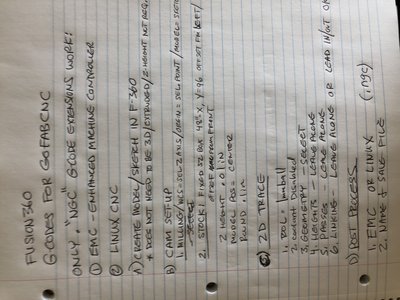 FUSION 360
G-CODES FOR GOFABCNC
ONLY ."NGC" G-CODE EXTENSIONS WORK:
① EMC - ENHANCED MACHINE CONTROLLER
② LINUX CNC
A) CREATE MODEL/SKETCH IN F-360
* DOES NOT NEED TO BE 3D/EXTRUDED/Z-HEIGHT NOT REQ.
B) CAM SET-UP
1. MILLING/WCS=SEL Z AXIS/ORIGIN=SEL POINT/MODEL=SKETCH
2. STOCK: FIXED SZ BOX 48"X, Y=96 OFFSET FM LEFT/
FROM FRONT
Z HEIGHT .01 IN
MODEL POS= CENTER
ROUND .1 IN
C) 2D TRACE
1. TOOL = 1mm ball
2. coolant Disabled
3. GEOMETRY - SELECT
4. HEIGHTS - LEAVE ALONE
5. PASSES - LEAVE ALONE
6. LINKING - LEAVE ALONE OR LEAD IN/OUT
D) POST PROCESS
1. EMC OR LINUX (.ngc)
2. NAME & SAVE FILE